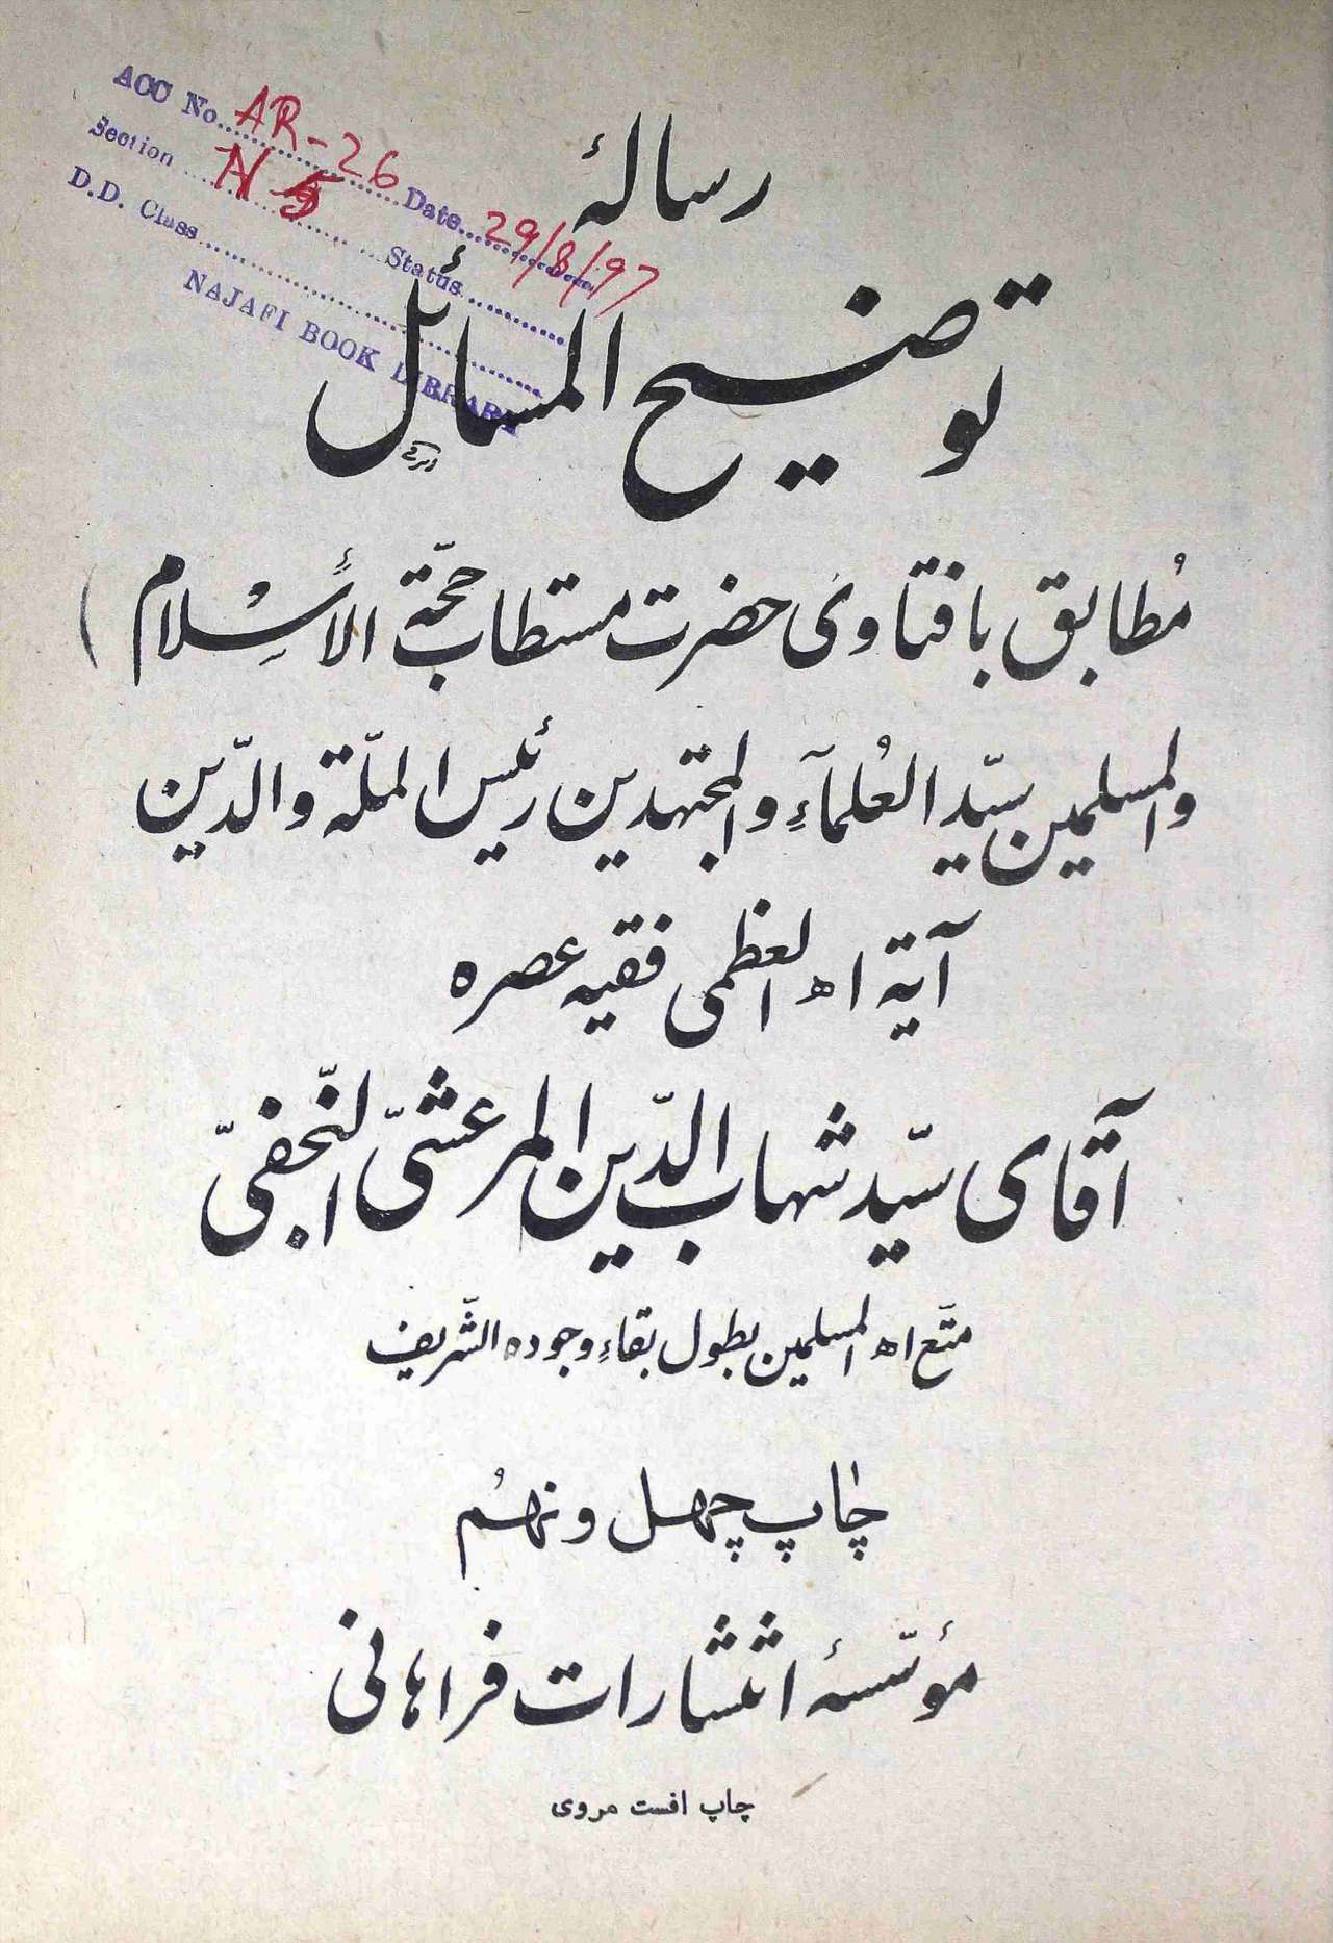 ACC No. AR-26 Date 29/8/97
Section N 5 Status
D.D. Class
NAJAFI BOOK LIBRARY
رسالهٔ
توضیح المسائل
مُطابق با فتاوی حضرت مستطاب حجّة الأسْلام
والمسلمین سیّد العُلمآءِ والمجتهدین رئیس الملّة والدّین
آیة الله العظمی فقیه عصره
آقای سیّد شهاب الدّین المرعشیّ النّجفیّ
متّع الله المسلمین بطول بقاءِ وجوده الشّریف
چاپ چهل و نهُم
مؤسّسهٔ انتشارات فراهانی
چاپ افست مروی